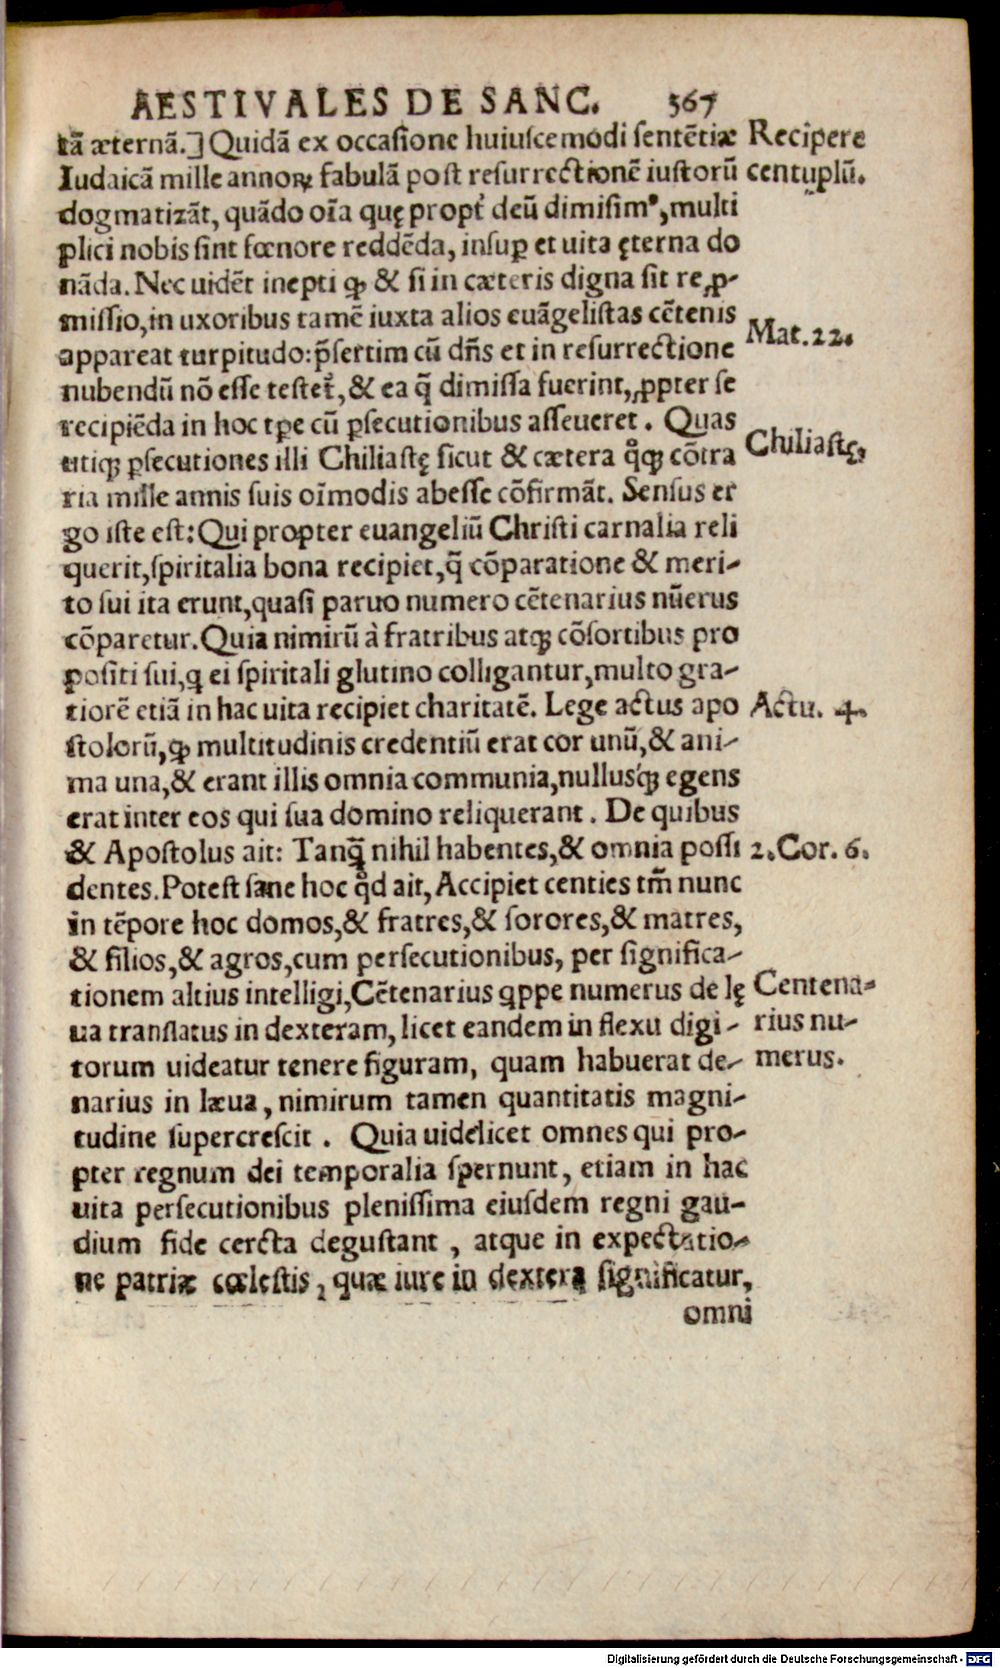 AESTIVALES DE SANC. 367
tã æternã.] Quidã ex occasione huiuscemodi sentẽtiæ
Recipere
Iudaicã mille annoꝝ fabulã post resurrectionẽ iustorũ
centuplũ.
dogmatizãt, quãdo oĩa quę propt̃ deũ dimisimꝰ, multi
plici nobis sint fœnore reddẽda, insuꝑ et uita ęterna do
nãda. Nec uidẽt inepti ꝙ & si in cæteris digna sit reꝓ-
missio, in uxoribus tamẽ iuxta alios euãgelistas cẽtenis
Mat. 22.
appareat turpitudo: p̃sertim cũ dñs et in resurrectione
nubendũ nõ esse testet̃, & ea q̃ dimissa fuerint, ꝓpter se
recipiẽda in hoc tp̃e cũ ꝑsecutionibus asseueret. Quas
Chiliastę,
utiqꝫ ꝑsecutiones illi Chiliastę sicut & cætera q̊qꝫ cõtra
ria mille annis suis oĩmodis abesse cõfirmãt. Sensus er
go iste est: Qui propter euangeliũ Christi carnalia reli
querit, spiritalia bona recipiet, q̃ cõparatione & meri-
to sui ita erunt, quasi paruo numero cẽtenarius nũerus
cõparetur. Quia nimirũ à fratribus atqꝫ cõsortibus pro
positi sui, ꝗ ei spiritali glutino colligantur, multo gra-
tiorẽ etiã in hac uita recipiet charitatẽ. Lege actus apo
Actu. 4.
stolorũ, ꝙ multitudinis credentiũ erat cor unũ, & ani-
ma una, & erant illis omnia communia, nullusqꝫ egens
erat inter eos qui sua domino reliquerant. De quibus
& Apostolus ait: Tanꝙ̃ nihil habentes, & omnia possi
2. Cor. 6.
dentes. Potest sane hoc qd̃ ait, Accipiet centies tm̃ nunc
in tẽpore hoc domos, & fratres, & sorores, & matres,
& filios, & agros, cum persecutionibus, per significa-
tionem altius intelligi, Cẽtenarius ꝗppe numerus de lę
Centena-
ua translatus in dexteram, licet eandem in flexu digi-
rius nu-
torum uideatur tenere figuram, quam habuerat de-
merus.
narius in læua, nimirum tamen quantitatis magni-
tudine supercrescit. Quia uidelicet omnes qui pro-
pter regnum dei temporalia spernunt, etiam in hac
uita persecutionibus plenissima eiusdem regni gau-
dium fide cercta degustant, atque in expectatio-
ne patriæ cœlestis, quæ iure in dextera significatur,
omni
Digitalisierung gefördert durch die Deutsche Forschungsgemeinschaft - DFG